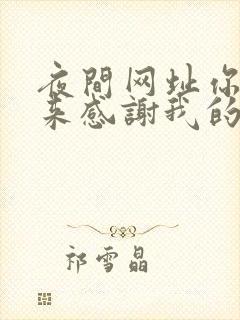 夜間网址你
来感謝我的
祁雪晶